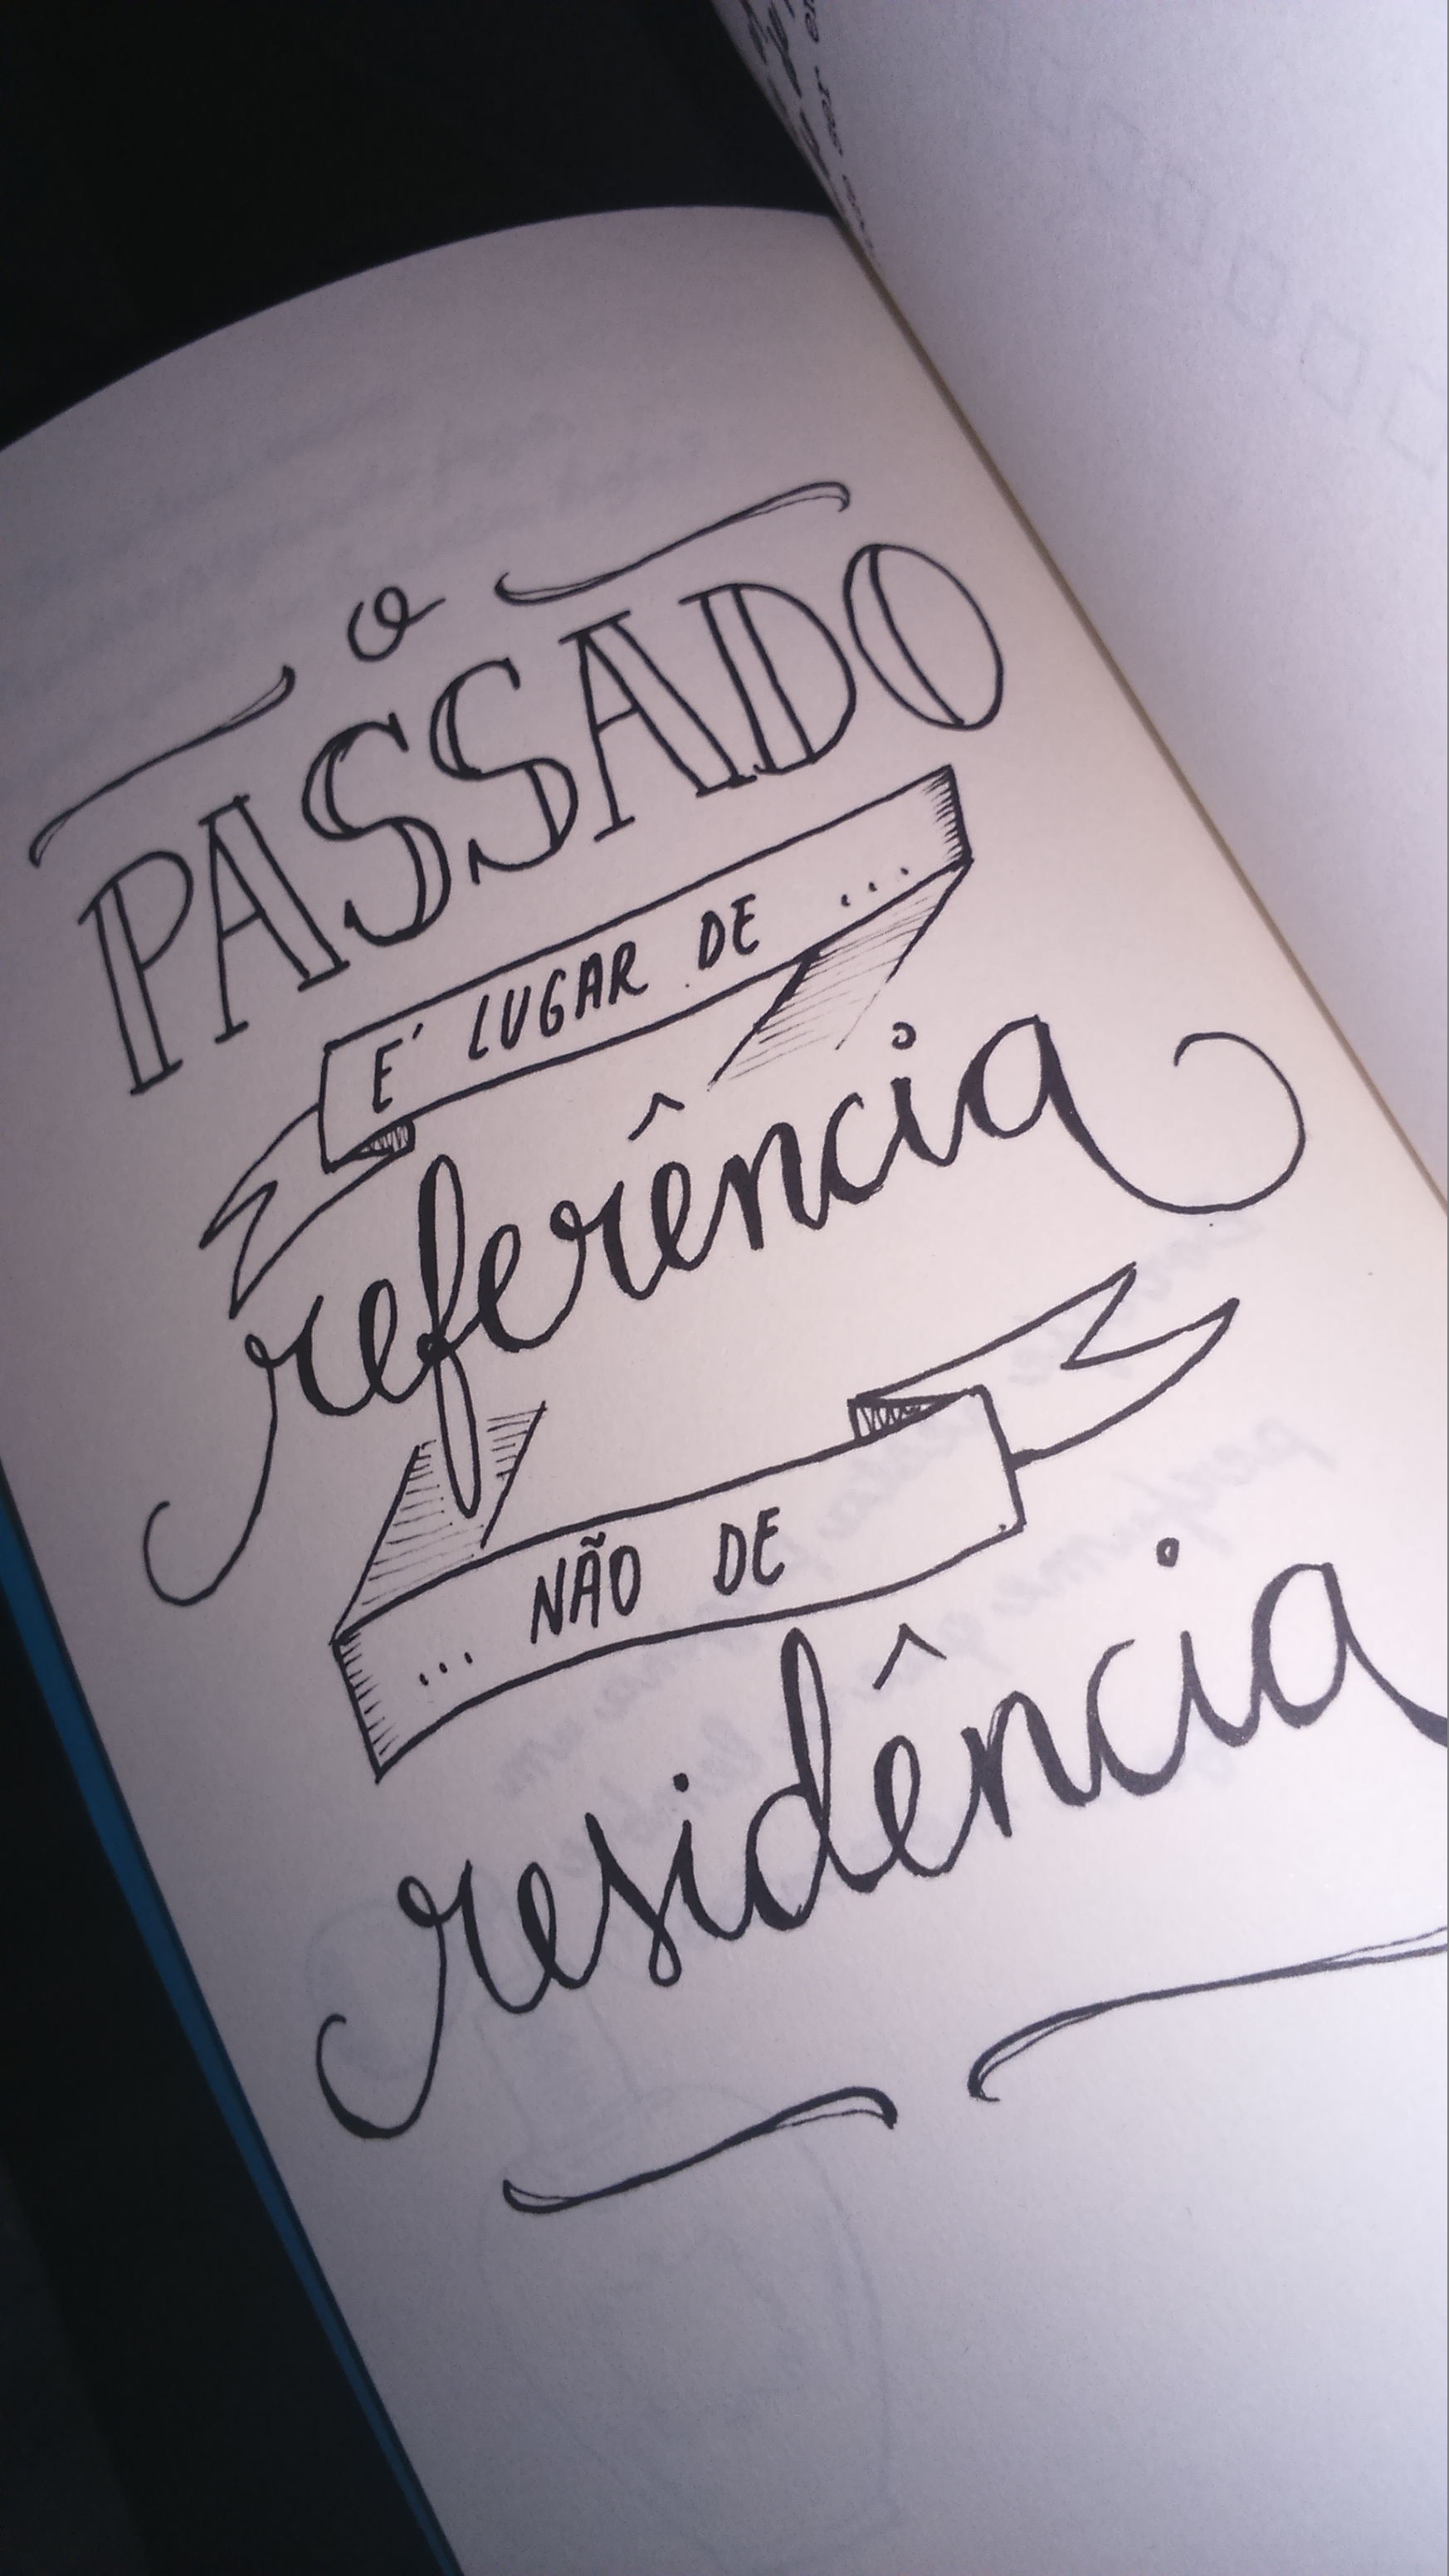 o
PASSADO
É LUGAR DE ...
referência
... NÃO DE
residência